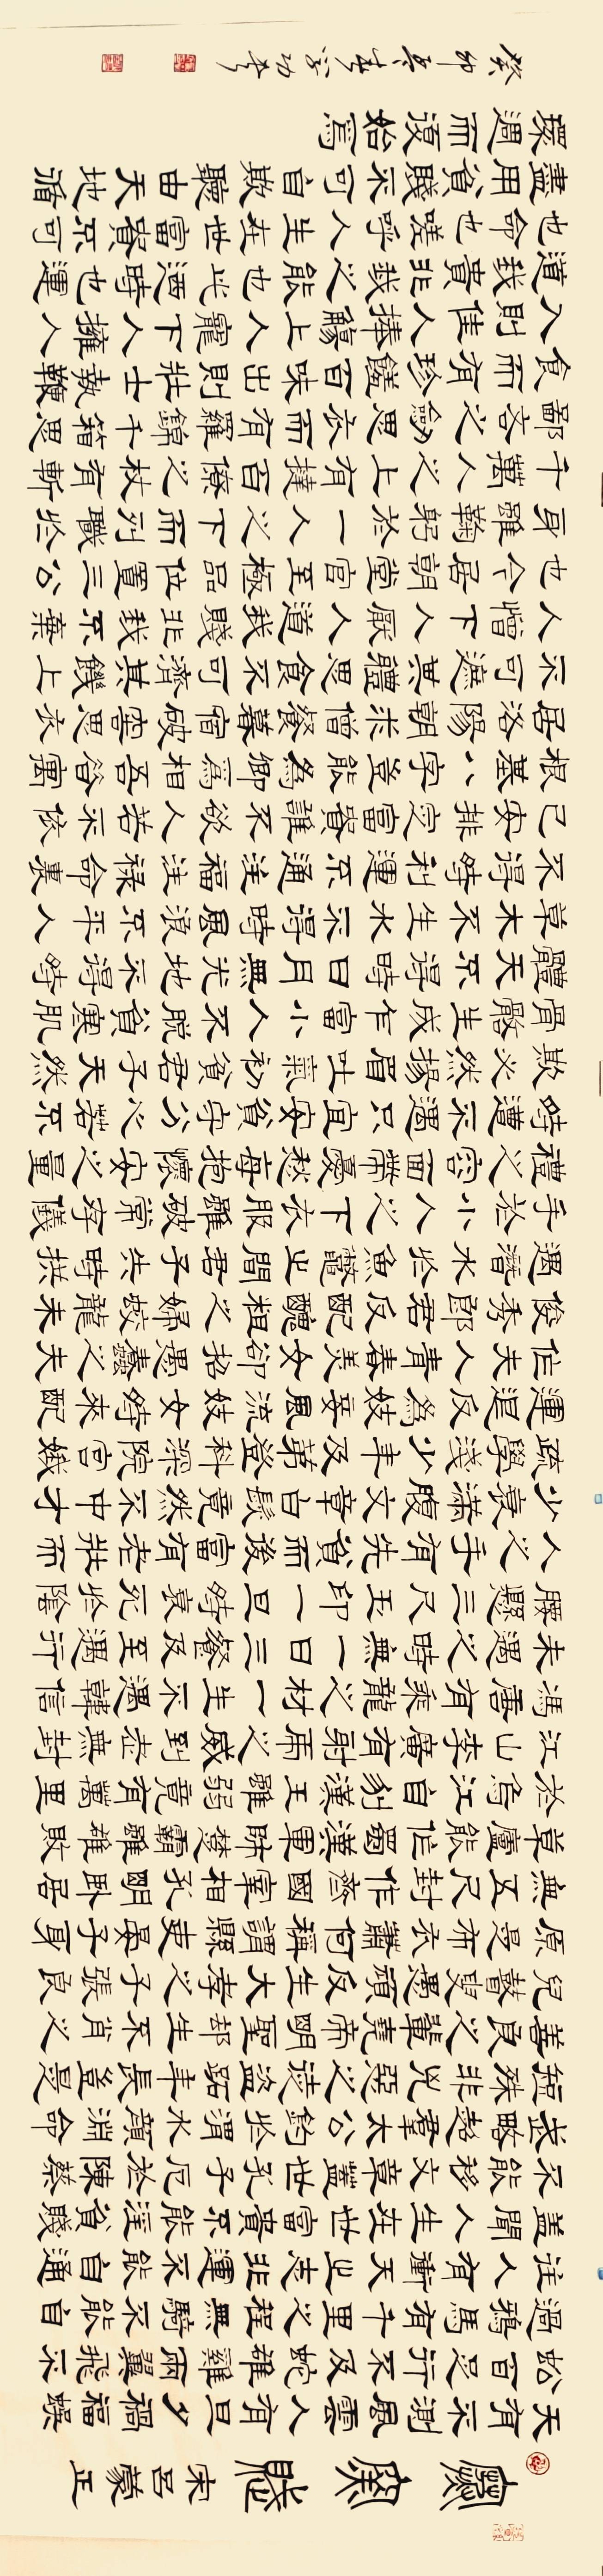 寒窯賦
宋呂蒙正
天有不測風雲人有旦夕禍福蜈
蚣百足行不及蛇雄雞兩翼飛不
過鴉馬有千里之程無騎不能自
往人有衝天之志非運不能自通
蓋聞人生在世富貴不能淫貧賤
不能移文章蓋世孔子厄於陳蔡
武略超群太公釣於渭水顏淵命
短殊非兇惡之徒盜跖年長豈是
善良之輩堯帝明聖卻生不肖之
兒瞽叟愚頑反生大孝之子張良
原是布衣蕭何稱謂縣吏晏子身
無五尺封作齊國宰相孔明臥居
草廬能作蜀漢軍師楚霸雖雄敗
於烏江自刎漢王雖弱竟有萬里
江山李廣有射虎之威到老無封
馮唐有乘龍之材一生不遇韓信
未遇之時無一日三餐及至遇行
腰懸三尺玉印一旦時衰死於陰
人之手有先貧而後富有老壯而
少衰滿腹文章白髮竟然不中才
疏學淺少年及第登科深院宮娥
運退反為妓妾風流妓女時來配
作夫人青春美女卻招愚蠢之夫
俊秀郎君反配粗醜之婦蛟龍未
遇潛水於魚鱉之間君子失時拱
手於小人之下衣服雖破常存儀
禮之容面帶憂愁每抱懷安之量
時遭不遇只宜安貧守份心若不
欺必然揚眉吐氣初貧君子天然
骨骼生成乍富小人不脫貧寒肌
體天不得時日月無光地不得時
草木不生水不得時風浪不平人
不得時利運不通注福注祿命裏
已安排定富貴誰不欲人若不依
根基八字豈能為卿為相吾昔寓
居洛陽朝求僧餐暮宿破窯思衣
不可遮其體思食不可濟其饑上
人憎下人厭人道我賤非我不棄
也今居朝堂官至極品位置三公
身雖鞠躬於一人之下而列職於
千萬人之上有撻百僚之杖有斬
鄙吝之劍思衣而有羅錦千箱思
食而有珍饈百味出則壯士執鞭
入則佳人捧觴上人寵下人擁人
道我貴非我之能也此乃時也運
也命也嗟呼人生在世富貴不可
盡用貧賤不可自欺聽由天地循
環週而復始焉
癸卯年春